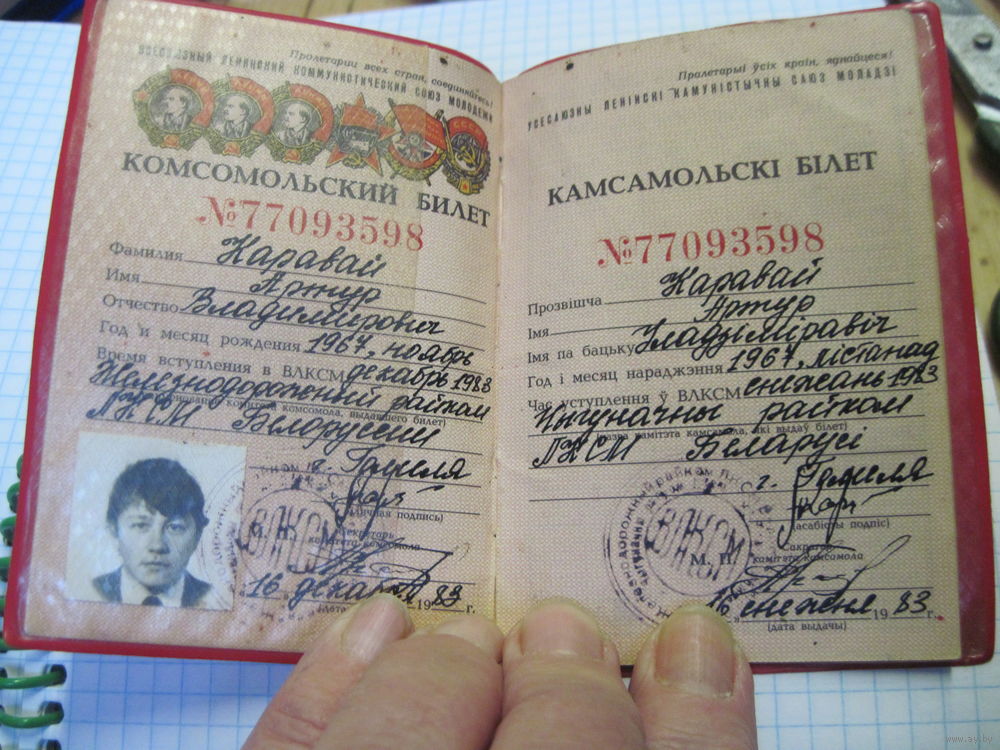 Пролетарии всех стран, соединяйтесь!
ВСЕСОЮЗНЫЙ ЛЕНИНСКИЙ КОММУНИСТИЧЕСКИЙ СОЮЗ МОЛОДЕЖИ
КОМСОМОЛЬСКИЙ БИЛЕТ
№77093598
Фамилия Каравай
Имя Артур
Отчество Владимирович
Год и месяц рождения 1967, ноябрь
Время вступления в ВЛКСМ декабрь 1983
Железнодорожный райком
комитета комсомола, выдавшего билет)
ЛКСМ Белоруссии
г. Гомеля
(личная подпись)
М. П.
Секретарь
комитета комсомола
ВЛКСМ
16 декабря 1983 г.
Пралетарыі ўсіх краін, яднайцеся!
УСЕСАЮЗНЫ ЛЕНІНСКІ КАМУНІСТЫЧНЫ САЮЗ МОЛАДЗІ
КАМСАМОЛЬСКІ БІЛЕТ
№77093598
Прозвішча Каравай
Імя Артур
Імя па бацьку Уладзіміравіч
Год і месяц нараджэння 1967, лістапад
Час уступлення ў ВЛКСМ снежань 1983
Чыгуначны райком
(назва камітэта камсамола, які выдаў білет)
ЛКСМ Беларусі
г. Гомеля
(асабісты подпіс)
М. П.
Сакратар
камітэта камсамола
ВЛКСМ
16 снежня 1983 г.
(дата выдачы)
www.ay.by